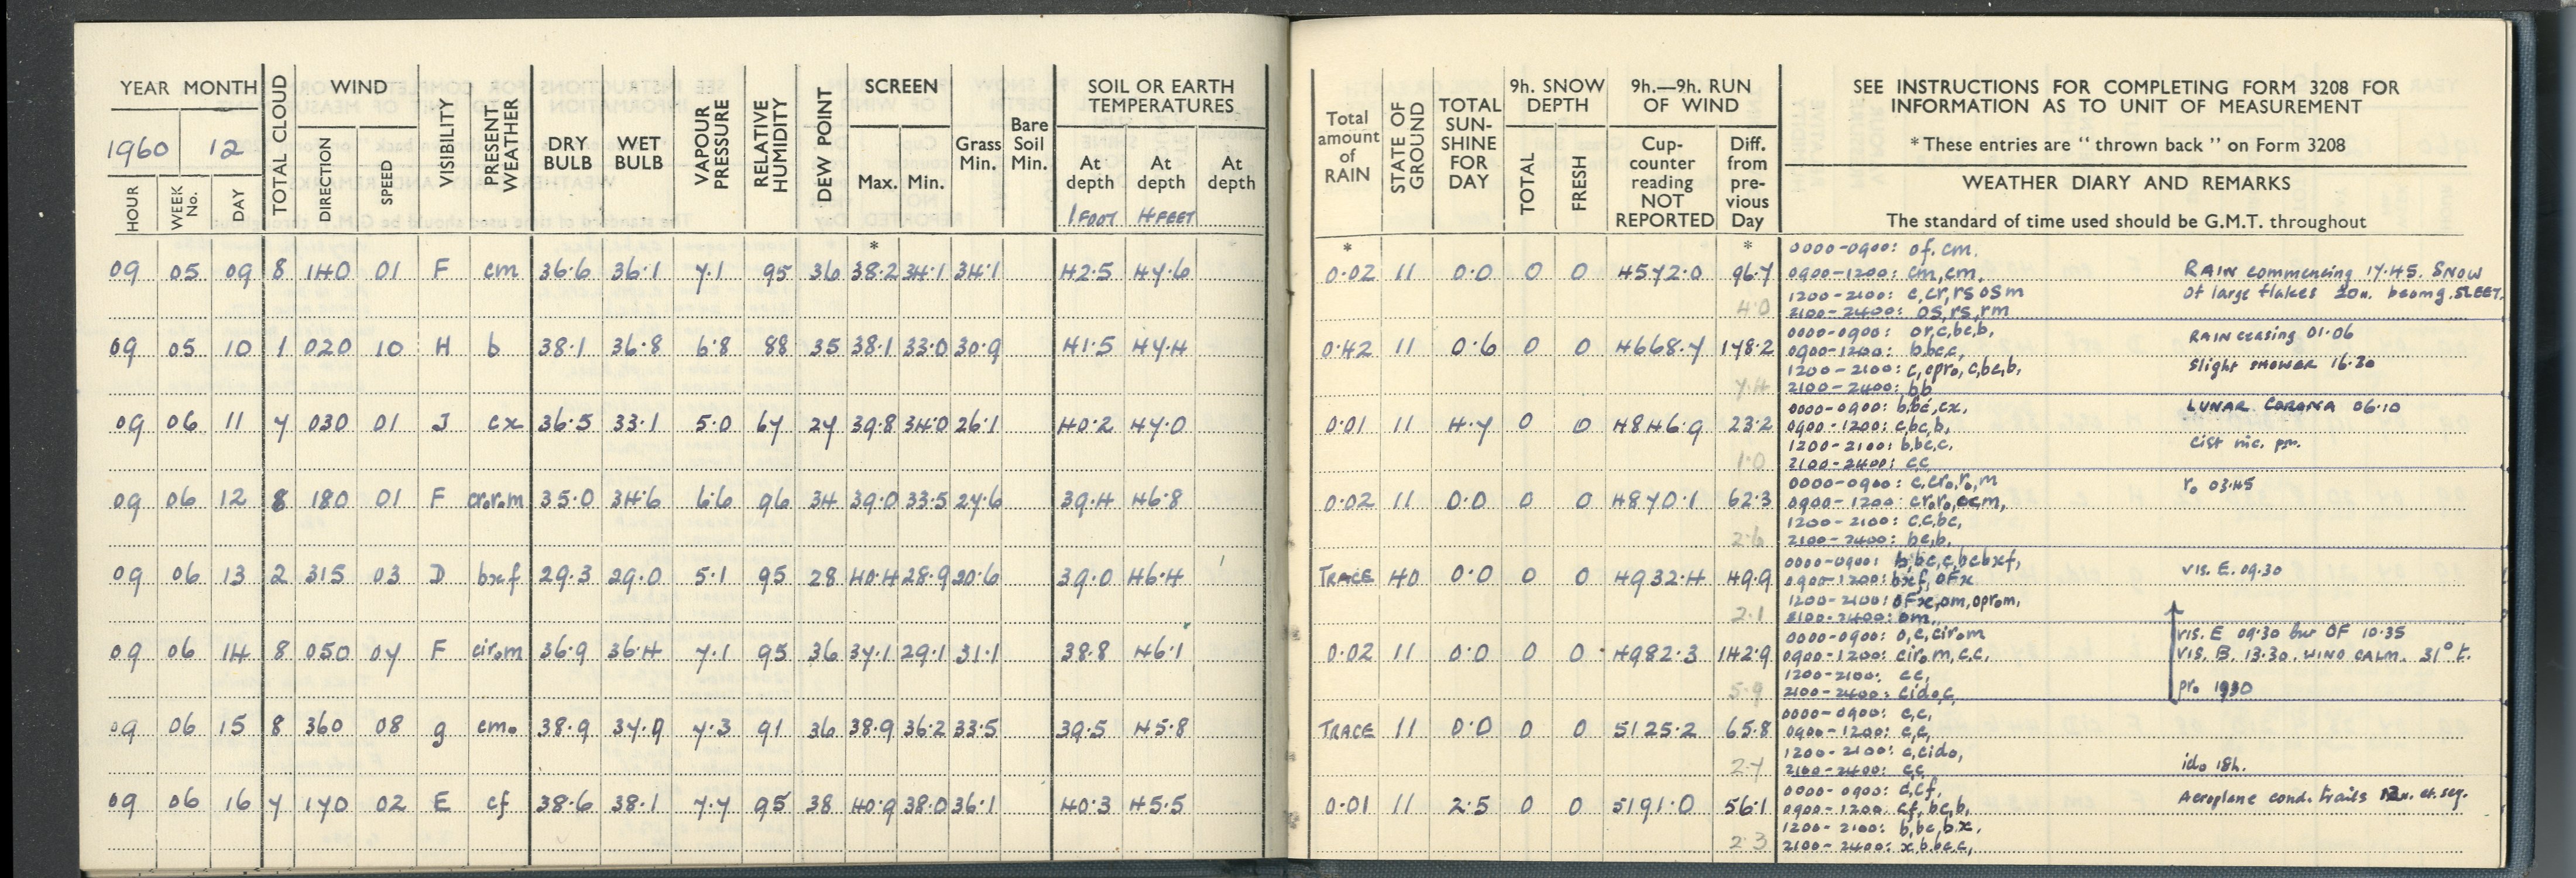 YEAR MONTH
1960 12
HOUR WEEK No. DAY TOTAL CLOUD WIND DIRECTION SPEED VISIBILITY PRESENT WEATHER DRY BULB WET BULB VAPOUR PRESSURE RELATIVE HUMIDITY DEW POINT SCREEN Max. Min. Grass Min. Bare Soil Min. SOIL OR EARTH TEMPERATURES At depth 1 FOOT At depth 4 FEET At depth
09 05 09 8 140 01 F cm 36.6 36.1 7.1 95 36 38.2 34.1 34.1 42.5 47.6
09 05 10 1 020 10 H b 38.1 36.8 6.8 88 35 38.1 33.0 30.9 41.5 47.4
09 06 11 7 030 01 J cx 36.5 33.1 5.0 67 27 39.8 34.0 26.1 40.2 47.0
09 06 12 8 180 01 F cr₀r₀m 35.0 34.6 6.6 96 34 39.0 33.5 27.6 39.4 46.8
09 06 13 2 315 03 D bxf 29.3 29.0 5.1 95 28 40.4 28.9 20.6 39.0 46.4
09 06 14 8 050 07 F cir₀m 36.9 36.4 7.1 95 36 37.1 29.1 31.1 38.8 46.1
09 06 15 8 360 08 g cm₀ 38.9 37.9 7.3 91 36 38.9 36.2 33.5 39.5 45.8
09 06 16 7 170 02 E cf 38.6 38.1 7.7 95 38 40.9 38.0 36.1 40.3 45.5
Total amount of RAIN STATE OF GROUND TOTAL SUN-SHINE FOR DAY 9h. SNOW DEPTH TOTAL FRESH 9h.—9h. RUN OF WIND Cup-counter reading NOT REPORTED Diff. from pre-vious Day
SEE INSTRUCTIONS FOR COMPLETING FORM 3208 FOR
INFORMATION AS TO UNIT OF MEASUREMENT
* These entries are " thrown back " on Form 3208
WEATHER DIARY AND REMARKS
The standard of time used should be G.M.T. throughout
0000-0900: of, cm.
0.02 11 0.0 0 0 4572.0 96.7 0900-1200: cm, cm, RAIN commencing 17.45. SNOW
4.0 1200-2100: c, cr, rs os m of large flakes 20h. becmg. SLEET.
2100-2400: os, rs, rm
0000-0900: or, c, bc, b, RAIN ceasing 01.06
0.42 11 0.6 0 0 4668.7 178.2 0900-1200: b, bc, c,
1200-2100: c, cpr₀, c, bc, b, Slight SHOWER 16.30
7.4 2100-2400: b b
0000-0900: b, bc, cx, LUNAR CORONA 06.10
0.01 11 4.7 0 0 4846.9 23.2 0900-1200: c, bc, b,
1200-2100: b, bc, c, pm.
1.0 2100-2400: c c
0000-0900: c, cr₀, r₀, m r₀ 03.45
0.02 11 0.0 0 0 4870.1 62.3 0900-1200: cr₀r₀, ccm,
1200-2100: c, c, bc,
2.6 2100-2400: bc, b,
0000-0900: b, bc, c, bcbxf,
TRACE 40 0.0 0 0 4932.4 49.9 0900-1200: bxf, OFx VIS. E. 09.30
1200-2100: OFx, om, opr₀m,
2.1 2100-2400: om,
0000-0900: o, c, cir₀m VIS. E 09.30 but OF 10.35
0.02 11 0.0 0 0 4982.3 142.9 0900-1200: cir₀m, c, c, VIS. B. 13.30. WIND CALM. 31° t.
1200-2100: cc,
5.9 2100-2400: cid₀c, pr₀ 1930
0000-0900: c, c,
TRACE 11 0.0 0 0 5125.2 65.8 0900-1200: c, c,
1200-2100: c, cid₀,
2.7 2100-2400: cc id₀ 18h.
0000-0900: c, cf,
0.01 11 2.5 0 0 5191.0 56.1 0900-1200. cf, bc, b, Aeroplane cond. trails 12h. et. seq.
1200-2100: b, bc, b x,
2.3 2100-2400: x, b, bc, c,